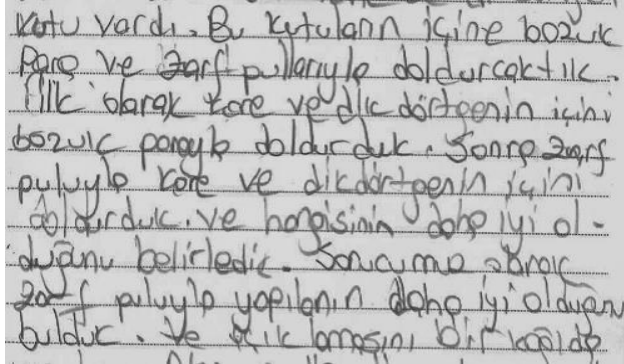 kutu vardı. Bu kutuların içine bozuk
para ve zarf pullarıyla doldurcaktık.
İlk olarak kare ve dikdörtgenin içini
bozuk parayla doldurduk. Sonra zarf
puluyla kare ve dikdörtgenin içini
doldurduk. ve hangisinin daha iyi ol-
duğunu belirledik. Sonucuma olarak
zarf puluyla yapılanın daha iyi olduğunu
bulduk. Ve bir kağıda